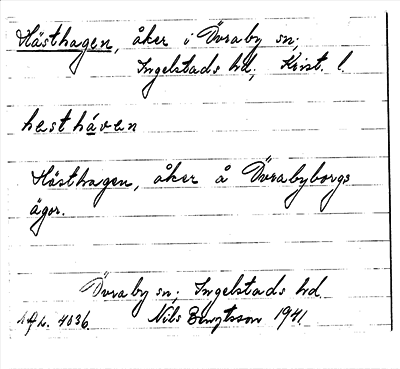 Hästhagen, åker i Övraby sn;
Ingelstads hd, Krist. l.
hesthávan
Hästhagen, åker å Övrabyborgs
ägor.
Övraby sn; Ingelstads hd.
4036. Nils Bengtsson 1941.